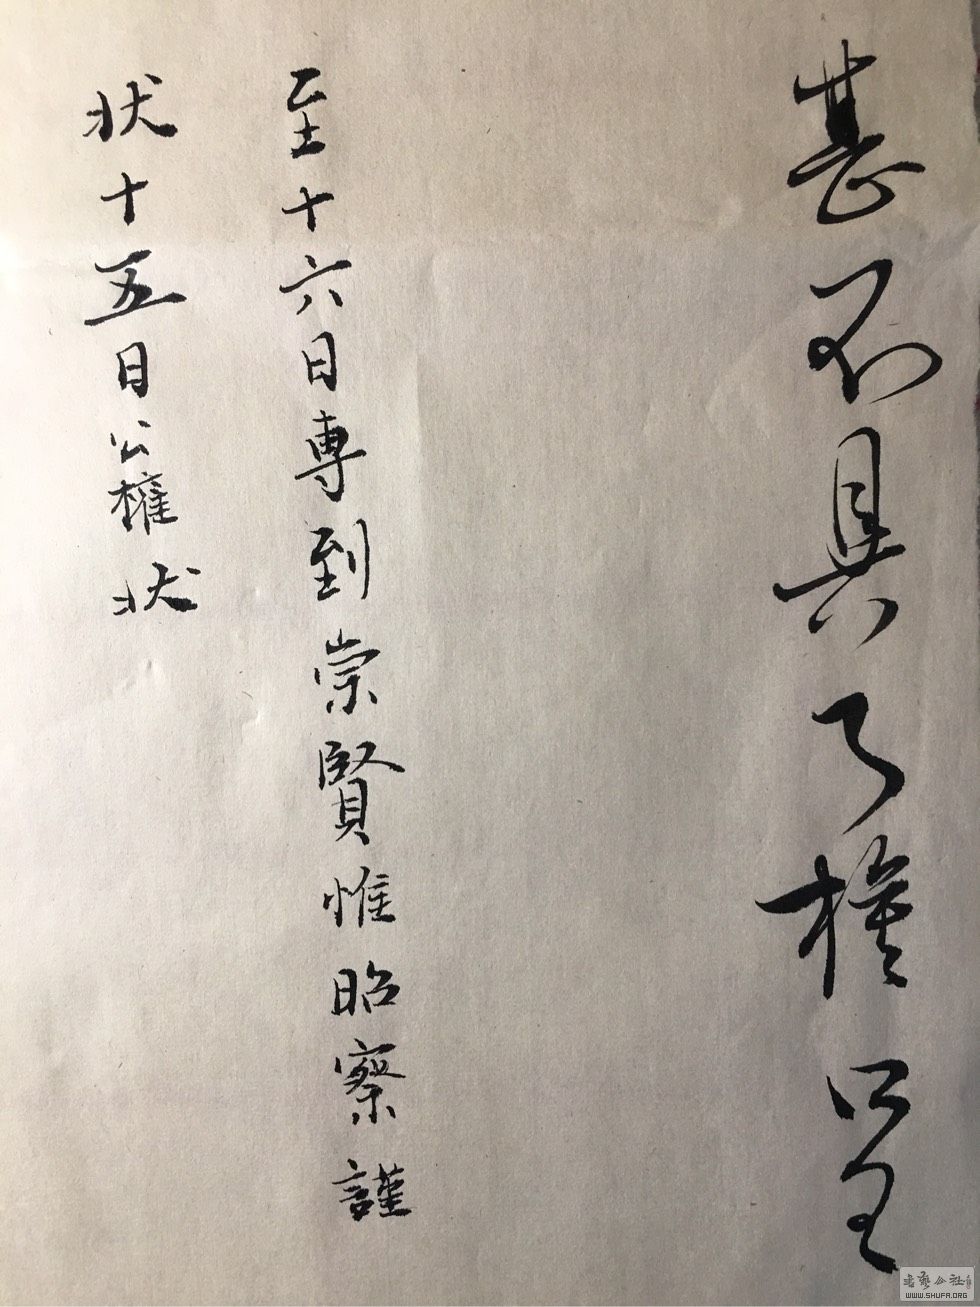 甚不具公權呈
至十六日専到崇賢惟昭察謹
状十五日公權状
书艺公社
WWW.SHUFA.ORG